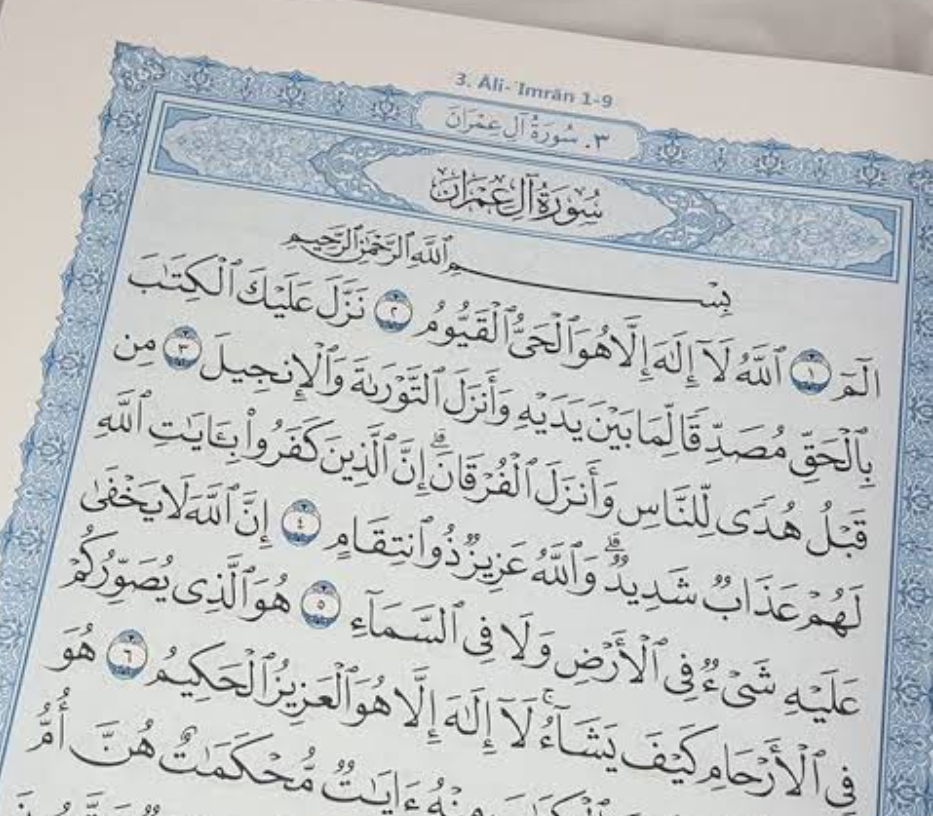 3. Ali-'Imrān 1-9
٣. سُورَةُ آلِ عِمْرَانَ
سُورَةُ آلِ عِمْرَانَ
بِسْمِ ٱللَّهِ ٱلرَّحْمَٰنِ ٱلرَّحِيمِ
الٓمٓ ١ ٱللَّهُ لَآ إِلَٰهَ إِلَّا هُوَ ٱلْحَىُّ ٱلْقَيُّومُ ٢ نَزَّلَ عَلَيْكَ ٱلْكِتَٰبَ
بِٱلْحَقِّ مُصَدِّقًا لِّمَا بَيْنَ يَدَيْهِ وَأَنزَلَ ٱلتَّوْرَىٰةَ وَٱلْإِنجِيلَ ٣ مِن
قَبْلُ هُدًى لِّلنَّاسِ وَأَنزَلَ ٱلْفُرْقَانَ ۗ إِنَّ ٱلَّذِينَ كَفَرُوا۟ بِـَٔايَٰتِ ٱللَّهِ
لَهُمْ عَذَابٌ شَدِيدٌ ۗ وَٱللَّهُ عَزِيزٌ ذُو ٱنتِقَامٍ ٤ إِنَّ ٱللَّهَ لَا يَخْفَىٰ
عَلَيْهِ شَىْءٌ فِى ٱلْأَرْضِ وَلَا فِى ٱلسَّمَآءِ ٥ هُوَ ٱلَّذِى يُصَوِّرُكُمْ
فِى ٱلْأَرْحَامِ كَيْفَ يَشَآءُ ۚ لَآ إِلَٰهَ إِلَّا هُوَ ٱلْعَزِيزُ ٱلْحَكِيمُ ٦ هُوَ
مِنْهُ ءَايَٰتٌ مُّحْكَمَٰتٌ هُنَّ أُمُّ